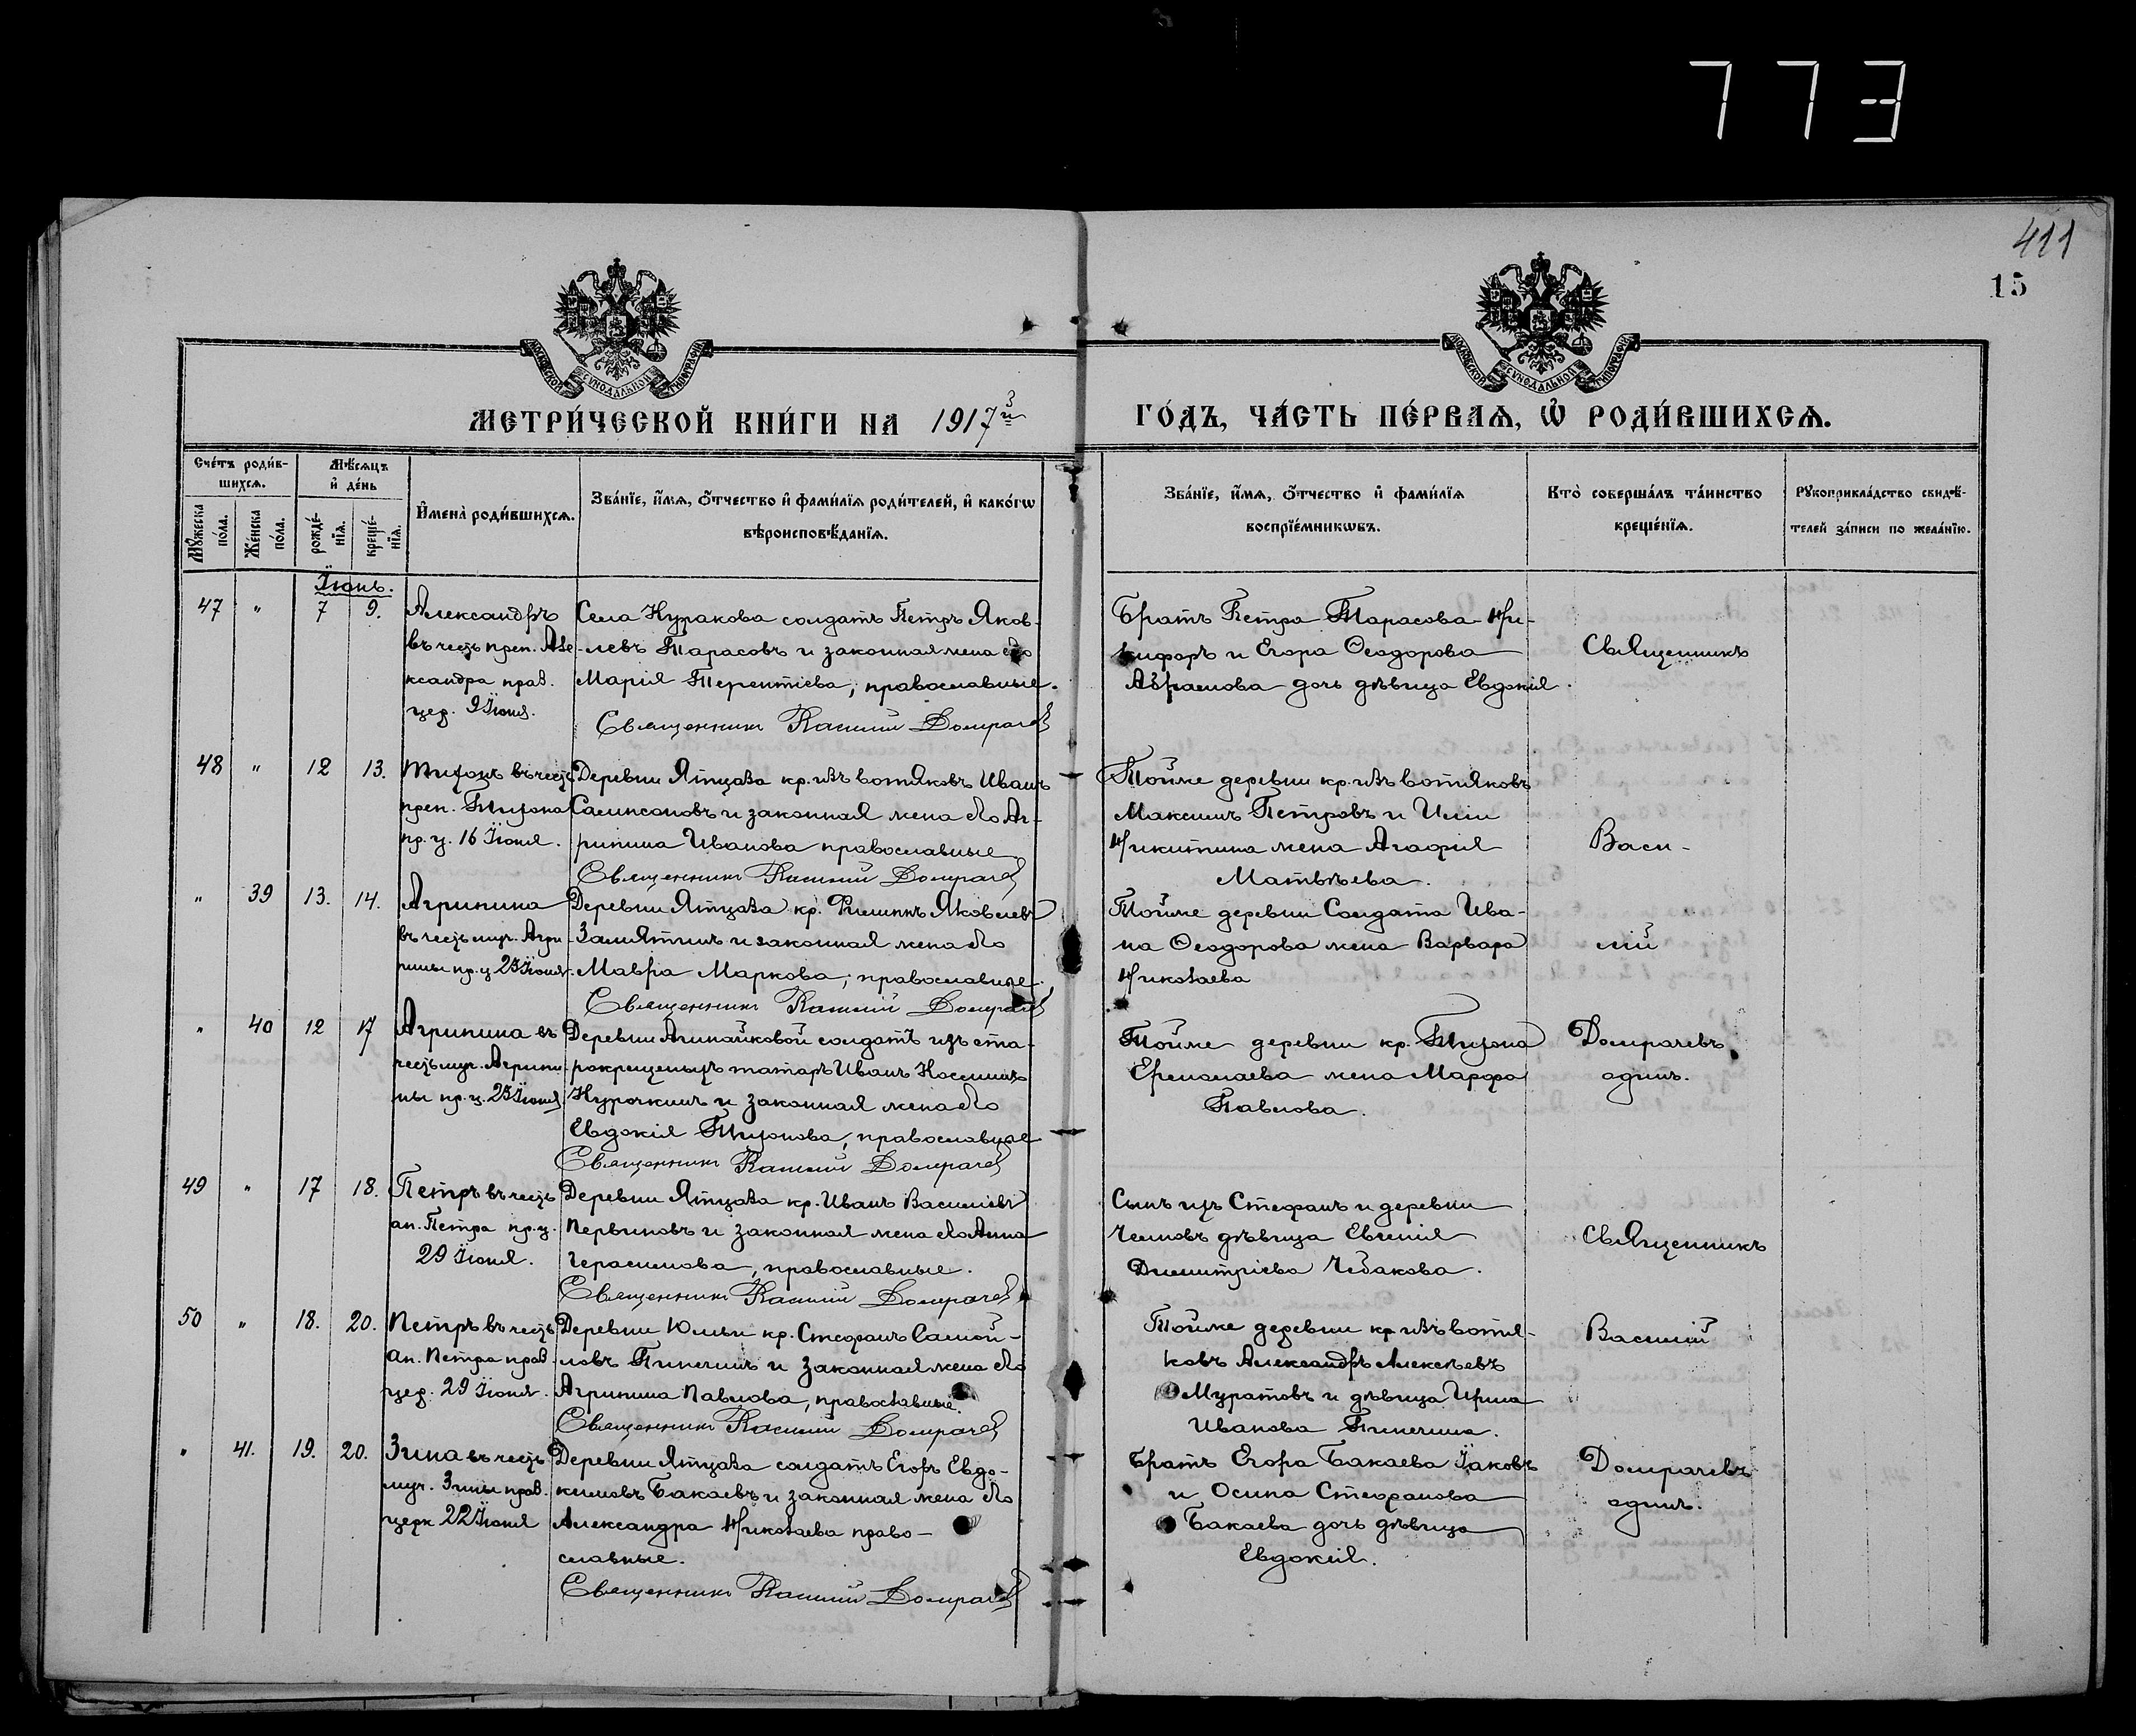 773
411
15
МОСКОВСКОЙ СѴНОДАЛЬНОЙ ТИПОГРАФІИ
МОСКОВСКОЙ СѴНОДАЛЬНОЙ ТИПОГРАФІИ
МЕТРИ́ЧЕСКОЙ КНИ́ГИ НА 1917й
ГО́ДЪ, ЧА́СТЬ ПЕ́РВАѦ, Ѡ҆ РОДИ́ВШИХСѦ.
Сче́тъ роди́в-
шихсѧ.
Мꙋжеска по́ла.
Же́нска по́ла.
Мѣ́сѧцъ
и҆ де́нь
рожде́-
нїѧ.
креще́-
нїѧ.
И҆мена̀ роди́вшихсѧ.
Зва́нїе, и҆́мѧ, ѻ҆́тчество и҆ фами́лїѧ роди́телей, и҆ како́гѡ
вѣроисповѣ́данїѧ.
Зва́нїе, и҆́мѧ, ѻ҆́тчество и҆ фами́лїѧ
воспрїе́мникѡвъ.
Кто̀ соверша́лъ та́инство
креще́нїѧ.
Рꙋкоприкла́дство свидѣ́-
телей за́писи по жела́нїю.
Іюнь.
47 " 7 9. Александръ
въ честь преп. Але
ксандра прав.
цер. 9 Іюня.
Села Куракова солдатъ Петръ Яков-
-левъ Тарасовъ и законная жена его
Марія Терентіева, православные.
Священникъ Василій Домрачев
Братъ Петра Тарасова Ни-
кифоръ и Егора Ѳеодорова
Абрамова дочь дѣвица Евдокія.
Священникъ
48 " 12 13. Тихонъ въ честь
преп. Тихона
пр. ц. 16 Іюня.
Деревни Ятцаза кр. изъ вотяковъ Иванъ
Самсоновъ и законная жена его Аг-
рипина Иванова православные
Священникъ Василій Домрачев
Тойже деревни кр. изъ вотяковъ
Максимъ Петровъ и Иліи
Никитина жена Агафія
Матвѣева.
Васи-
" 39 13. 14. Агрипина
въ честь муч. Агри
пины пр. ц 23 Іюня.
Деревни Ятцаза кр. Филиппъ Яковлев
Замятинъ и законная жена его
Мавра Маркова, православные.
Священникъ Василій Домрачев
Тойже деревни Солдата Ива-
на Ѳеодорова жена Варвара
Николаева
лій
" 40 12 17 Агрипина въ
честь муч. Агрипи
ны пр. ц. 23 Іюня.
солдатъ изъ ста-
рокрещеныхъ татаръ Иванъ
Курочкинъ и законная жена его
Евдокія Тихонова, православные
Священникъ Василій Домрачев
Тойже деревни кр. Тихона
Ермолаева жена Марфа
Павлова.
Домрачевъ
одинъ.
49 " 17 18. Петръ въ честь
ап. Петра пр. ц.
29 Іюня.
Деревни Ятцаза кр. Иванъ Василіев
Первиковъ и законная жена его Анна
Герасимова, православные.
Священникъ Василій Домрачев
Сынъ ихъ Стефанъ и деревни
дѣвица Евгенія
Димитріева Чебакова.
Священникъ
50 " 18. 20. Петръ въ честь
ап. Петра прав
цер. 29 Іюня.
Деревни Юльи кр. Стефанъ Самой-
ловъ Пинегинъ и законная жена его
Агрипина Павлова, православные.
Священникъ Василій Домрачев
Тойже деревни кр изъ вотя-
ковъ Александръ Алексѣевъ
Муратовъ и дѣвица Ирина
Иванова Пинегина.
Василій
" 41. 19. 20. Зина въ честь
муч. Зины прав.
церк 22 Іюня
Деревни Ятцаза солдатъ Егоръ Евдо-
кимовъ Бакаевъ и законная жена его
Александра Николаева право-
славные.
Священникъ Василій Домрачев
Братъ Егора Бакаева Іаковъ
и Осипа Стефанова
Бакаева дочь дѣвица
Евдокія.
Домрачевъ
одинъ.